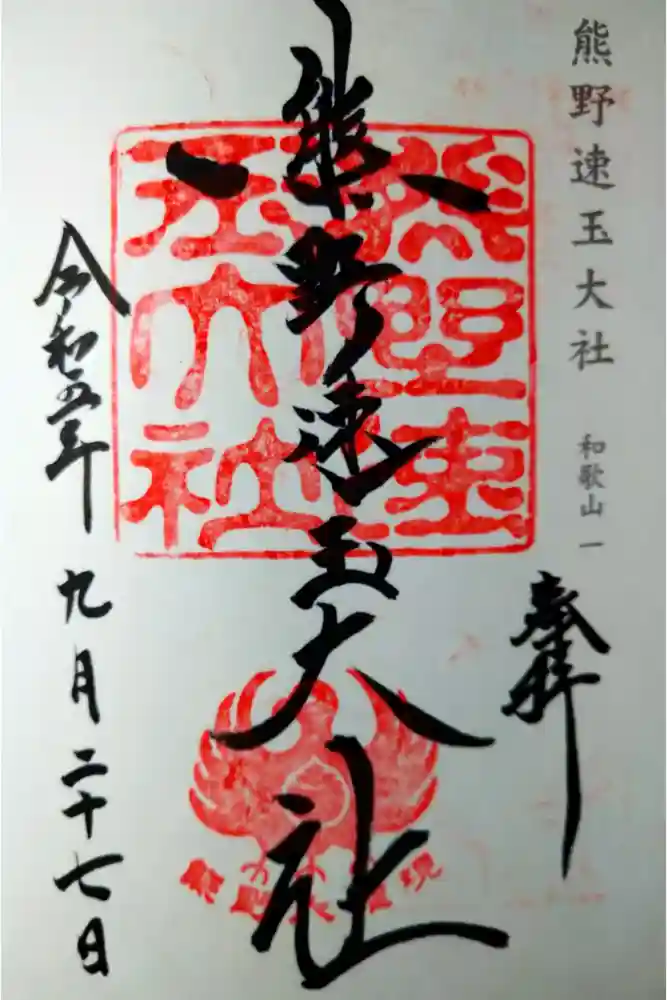 熊野速玉大社
和歌山一
奉拝
熊野速玉大社
熊野速玉大社
令和五年
九月二十七日